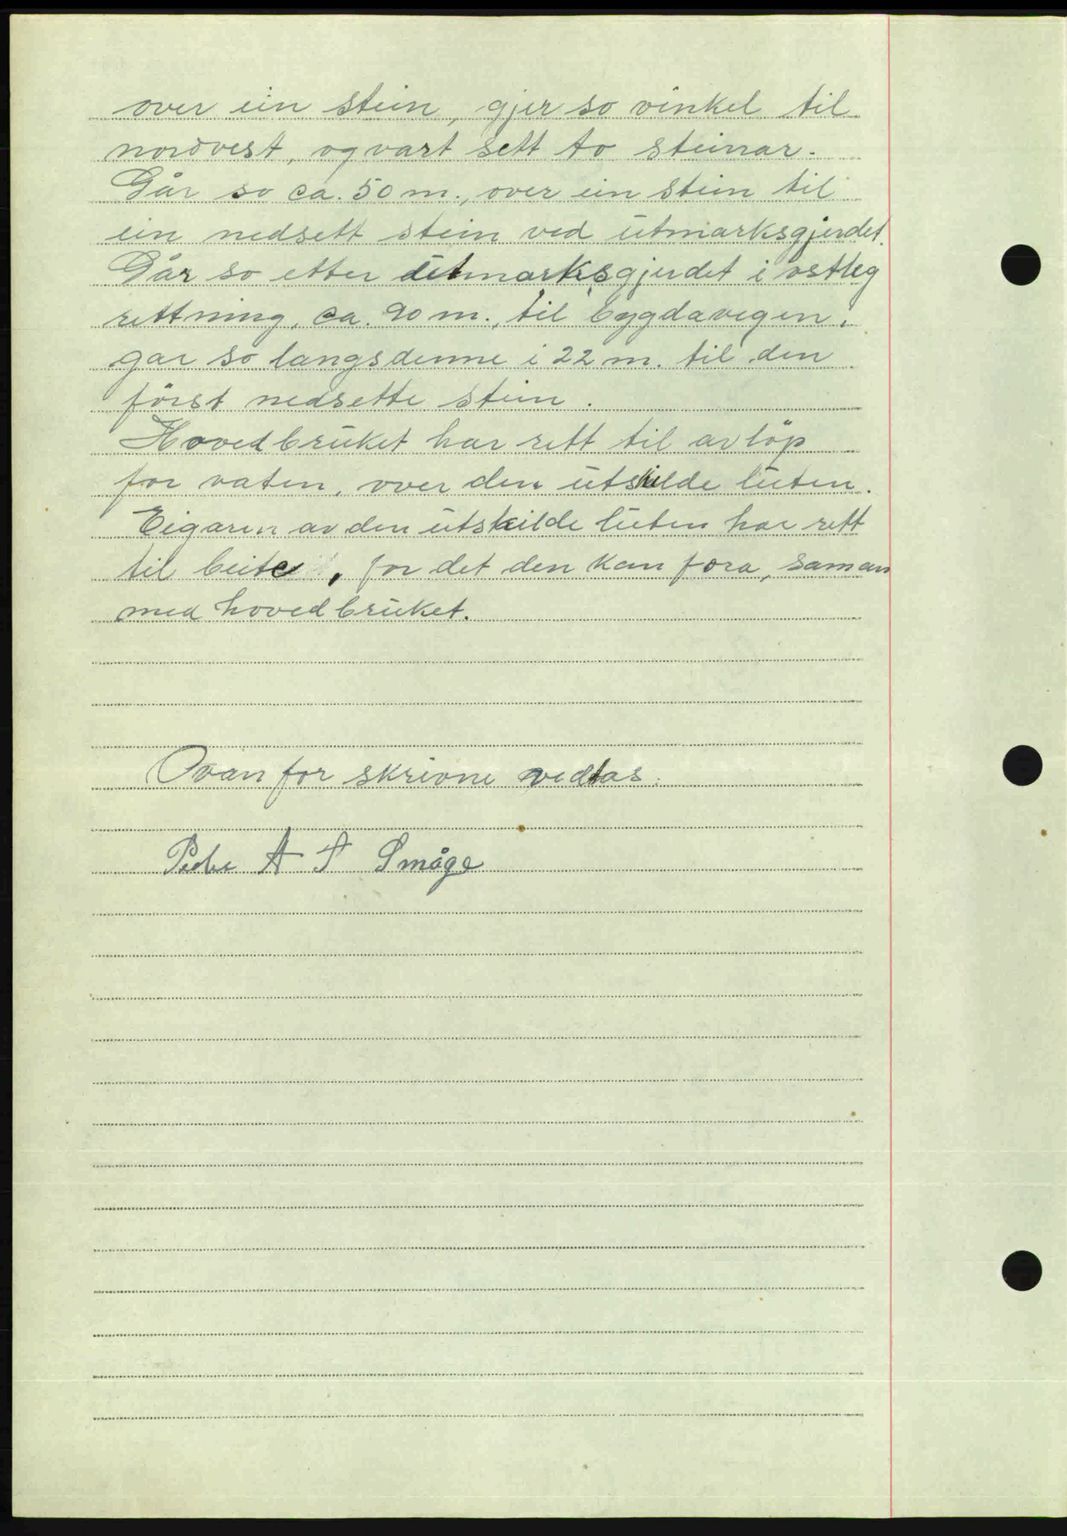 over ein stein, gjer so vinkel til
nordvest, og vart sett to steinar.
Går so ca. 50 m., over ein stein til
ein nedsett stein ved utmarksgjerdet.
Går so etter utmarksgjerdet i östleg
rettning, ca. 90 m., til bygdavegen,
gar so langs denne i 22 m. til den
först nedsette stein.
Hovedbruket har rett til avlöp
for vaten, over den utskilde luten.
Eigaren av den utskilde luten har rett
til beite, for det den kan fora, saman
med hovedbruket.
Ovanfor skrivne vedtas.
Peder A Småge